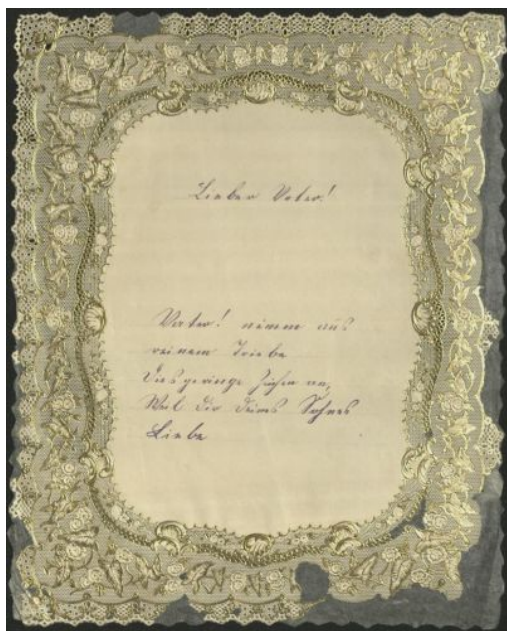 Lieber Vater!
Vater! nimm aus
reinem Triebe
Dies geringe Zeichen an,
Weil Dir Deines Sohnes
Liebe